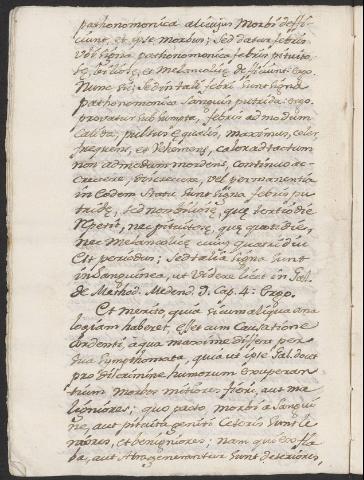 pathonomonica alicujus Morbi deffi-
ciunt, et ipse morbus; Sed datur febris
ubi signa pathonomonica febris pituito-
sę, biliosę, et Melancolicę deficiunt: Ergo.
Nunc sic; Sed in tali febri sunt signa
pathonomonica sanguis putrida: ergo.
probatur subsumpta, febris admodum
calida, pulsus ęqualis, maximus, celer,
frequens, et Vehemens, calor ad tactum
non admodum mordens, continuo ac-
crescere, decrescere, vel permanentia
in eodem statu sunt signa febris pu-
tridę, sed non biliosę, quę tertio die
repetit, nec pituitosę, quę quotidie;
nec melancolicę cuius quartó dię
est periodus; Sed talia signa sunt
in sanguinea, ut videre licet in Gal.
de Method. Medend. 9. Cap. 4: Ergo.
Et merito, quia si cum aliqua ana-
logiam haberet, esset cum Causatione
Ardenti à qua maxime differt per
sua symptomata, quia ut ipse Gal. docet
pro discrimine humorum exuperan-
tium morbos mitiores fieri, aut ma-
ligniores; quo pacto, morbi a sangui-
ne, aut pituita geniti Cęteris sunt le-
niores, et benigniores; nam qui ex fla-
ba, aut Atra generantur sunt deteriores,